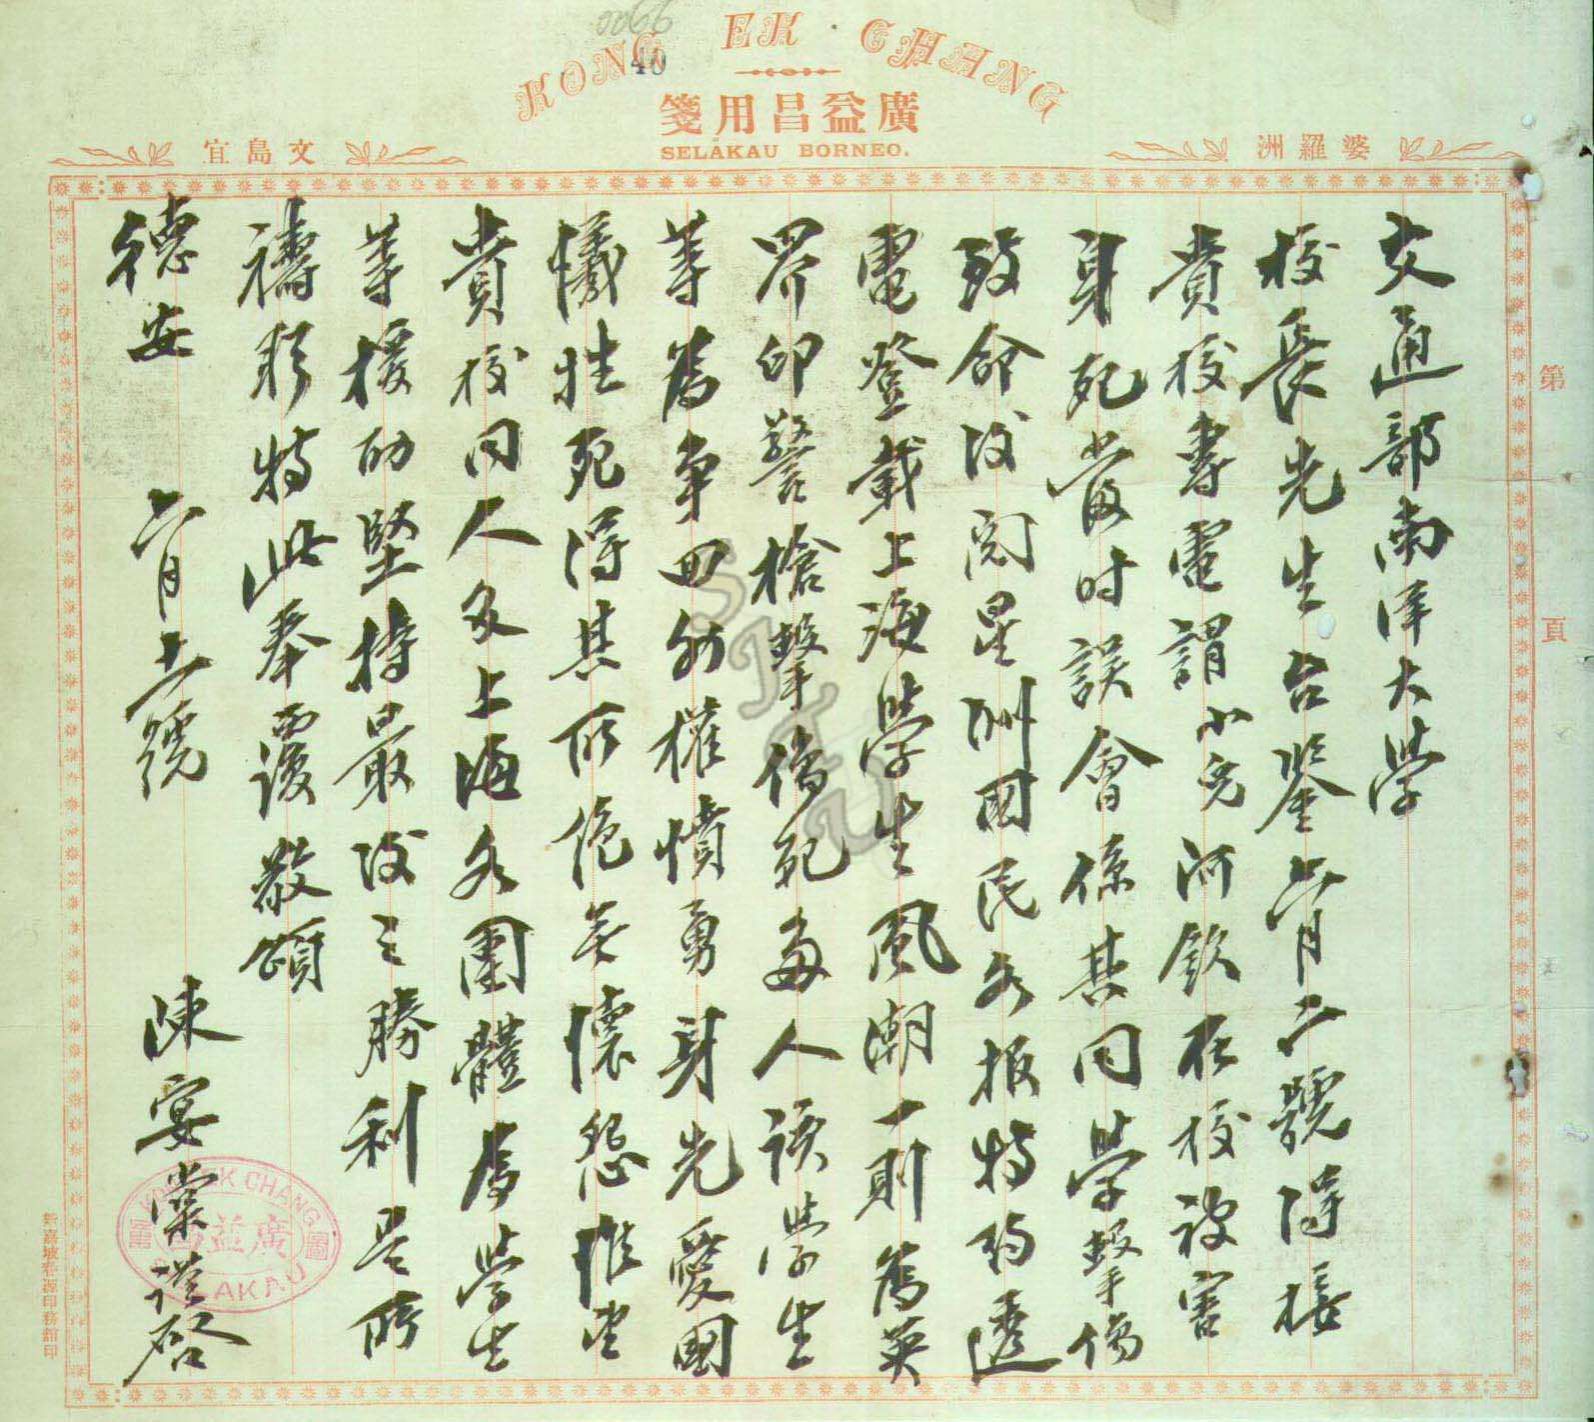 0066
40
KONG EK CHANG
廣益昌用箋
SELAKAU BORNEO.
婆羅洲
文島宜
第 頁
交通部南洋大學
校長先生台鑒六月二號得接
貴校專電謂小兒河欽在校被害
身死當時誤會係其同學擊傷
致命後閱星洲國民各报特約透
電登載上海學生風潮一則舊英
界印警槍擊傷死多人該學生
等為爭回外權憤勇身先愛國
犧牲死得其所絕無懷怨惟望
貴校同人及上海各團體為學生
等援助堅持最後之勝利是所
禱移特此奉覆敬頌
德安 六月十一號
陳宴棠謹啓
KONG EK CHANG
廣益昌
SELAKAU
SJTU